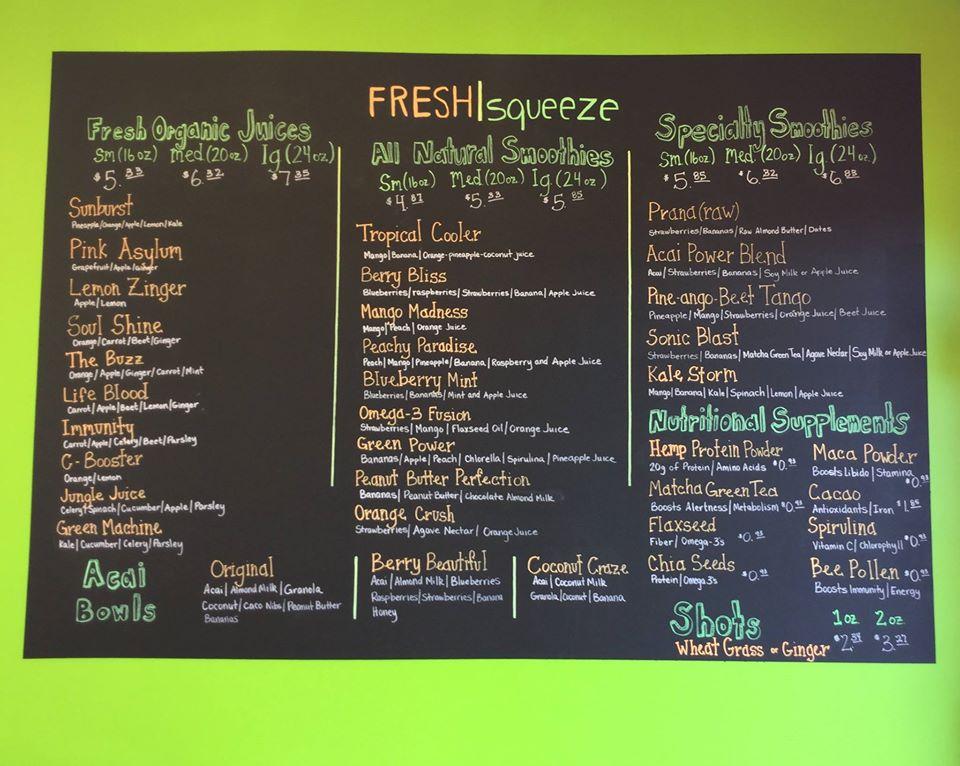 FRESH|squeeze
Fresh Organic Juices
Sm (16oz) Med (20oz) lg (24oz)
$5.33 $6.32 $7.35
Sunburst
Pineapple/Orange/Apple/Lemon/Kale
Pink Asylum
Grapefruit/Apple/Ginger
Lemon Zinger
Apple/Lemon
Soul Shine
Orange/Carrot/Beet/Ginger
The Buzz
Orange/Apple/Ginger/Carrot/Mint
Life Blood
Carrot/Apple/Beet/Lemon/Ginger
Immunity
Carrot/Apple/Celery/Beet/Parsley
C-Booster
Orange/Lemon
Jungle Juice
Celery/Spinach/Cucumber/Apple/Parsley
Green Machine
Kale/Cucumber/Celery/Parsley
All Natural Smoothies
Sm (16oz) Med (20oz) lg. (24oz)
$4.87 $5.33 $5.85
Tropical Cooler
Mango/Banana/Orange-pineapple-coconut juice
Berry Bliss
Blueberries/raspberries/Strawberries/Banana/Apple Juice
Mango Madness
Mango/Peach/Orange Juice
Peachy Paradise
Peach/Mango/Pineapple/Banana/Raspberry and Apple Juice
Blueberry Mint
Blueberries/Bananas/Mint and Apple Juice
Omega-3 Fusion
Strawberries/Mango/Flaxseed Oil/Orange Juice
Green Power
Bananas/Apple/Peach/Chlorella/Spirulina/Pineapple Juice
Peanut Butter Perfection
Bananas/Peanut Butter/Chocolate Almond Milk
Orange Crush
Strawberries/Agave Nectar/Orange Juice
Specialty Smoothies
Sm (16oz) Med (20oz) lg. (24oz)
$5.85 $6.32 $6.83
Prana (raw)
Strawberries/Bananas/Raw Almond Butter/Dates
Acai Power Blend
Acai/Strawberries/Bananas/Soy Milk or Apple Juice
Pine-ango-Beet Tango
Pineapple/Mango/Strawberries/Orange Juice/Beet Juice
Sonic Blast
Strawberries/Bananas/Matcha Green Tea/Agave Nectar/Soy Milk or Apple Juice
Kale Storm
Mango/Banana/Kale/Spinach/Lemon/Apple Juice
Nutritional Supplements
Hemp Protein Powder
20g of Protein/Amino Acids $0.93
Matcha Green Tea
Boosts Alertness/Metabolism $0.93
Flaxseed
Fiber/Omega-3's $0.93
Chia Seeds
Protein/Omega 3's $0.93
Maca Powder
Boosts Libido/Stamina $0.93
Cacao
Antioxidants/Iron $1.85
Spirulina
Vitamin C/Chlorophyll $0.93
Bee Pollen $0.93
Boosts Immunity/Energy
Acai
Bowls
Original
Acai/Almond Milk/Granola
Coconut/Caco Nibs/Peanut Butter
Bananas
Berry Beautiful
Acai/Almond Milk/Blueberries
Raspberries/Strawberries/Banana
Honey
Coconut Craze
Acai/Coconut Milk
Granola/Coconut/Banana
Shots 1oz 2oz
Wheat Grass or Ginger $2.34 $3.27